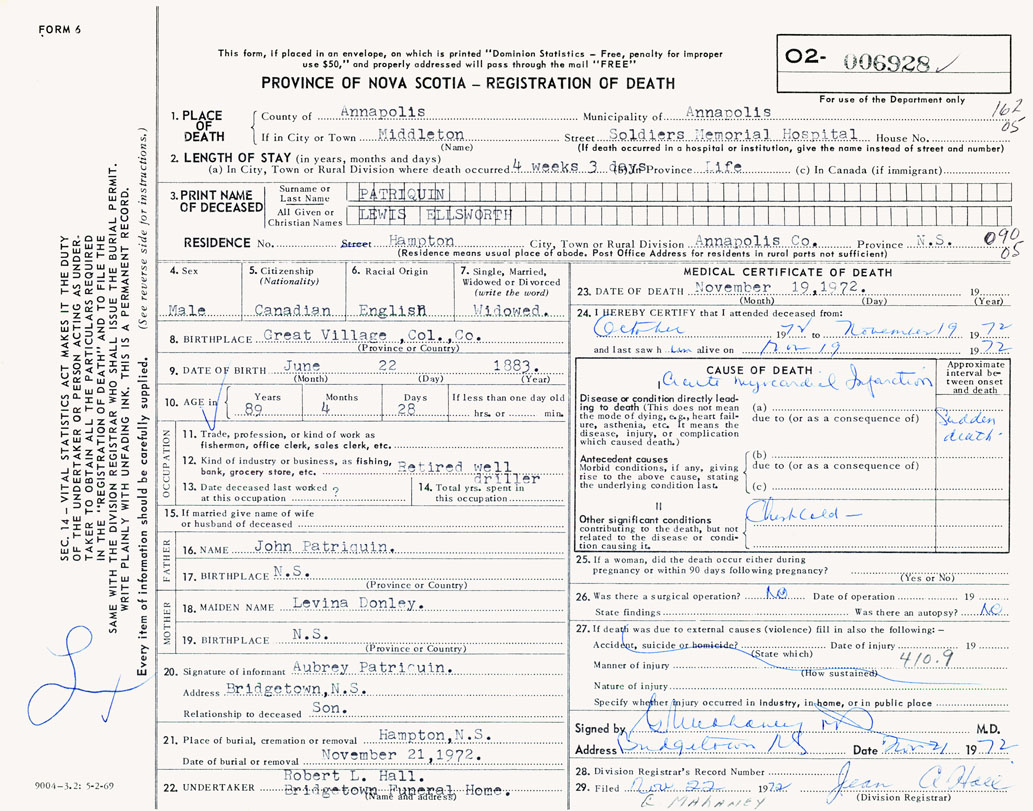 FORM 6
This form, if placed in an envelope, on which is printed "Dominion Statistics – Free, penalty for improper
use $50," and properly addressed will pass through the mail "FREE"
PROVINCE OF NOVA SCOTIA – REGISTRATION OF DEATH
02- 006928
For use of the Department only
162
05
1. PLACE OF DEATH
County of Annapolis Municipality of Annapolis
If in City or Town Middleton Street Soldiers Memorial Hospital House No.
(Name) (If death occurred in a hospital or institution, give the name instead of street and number)
2. LENGTH OF STAY (in years, months and days)
(a) In City, Town or Rural Division where death occurred 4 weeks 3 days (b) In Province Life (c) In Canada (if immigrant)
3. PRINT NAME OF DECEASED
Surname or Last Name PATRIQUIN
All Given or Christian Names LEWIS ELLSWORTH
RESIDENCE No. Street Hampton City, Town or Rural Division Annapolis Co. Province N.S. 090
05
(Residence means usual place of abode. Post Office Address for residents in rural parts not sufficient)
4. Sex
Male
5. Citizenship
(Nationality)
Canadian
6. Racial Origin
English
7. Single, Married,
Widowed or Divorced
(write the word)
Widowed.
8. BIRTHPLACE Great Village ,Col.,Co.
(Province or Country)
9. DATE OF BIRTH June 22 1883.
(Month) (Day) (Year)
10. AGE in Years Months Days If less than one day old
89 4 28 hrs. or min.
OCCUPATION
11. Trade, profession, or kind of work as
fisherman, office clerk, sales clerk, etc.
12. Kind of industry or business, as fishing,
bank, grocery store, etc. Retired well
driller
13. Date deceased last worked ?
at this occupation
14. Total yrs. spent in
this occupation
15. If married give name of wife
or husband of deceased
FATHER
16. NAME John Patriquin.
17. BIRTHPLACE N.S.
(Province or Country)
MOTHER
18. MAIDEN NAME Levina Donley.
19. BIRTHPLACE N.S.
(Province or Country)
20. Signature of informant Aubrey Patriquin.
Address Bridgetown,N.S.
Relationship to deceased Son.
21. Place of burial, cremation or removal Hampton,N.S.
Date of burial or removal November 21,1972.
Robert L. Hall.
22. UNDERTAKER Bridgetown Funeral Home.
(Name and address)
MEDICAL CERTIFICATE OF DEATH
23. DATE OF DEATH November 19,1972. 19
(Month) (Day) (Year)
24. I HEREBY CERTIFY that I attended deceased from:
October 1972 to November 19 1972
and last saw him alive on Nov 19 1972
CAUSE OF DEATH
Approximate interval between onset and death
I Acute Myocardial Infarction
Disease or condition directly leading to death (This does not mean the mode of dying, e.g., heart failure, asthenia, etc. It means the disease, injury, or complication which caused death.)
(a)
due to (or as a consequence of)
Sudden
death
Antecedent causes
Morbid conditions, if any, giving rise to the above cause, stating the underlying condition last.
(b)
due to (or as a consequence of)
(c)
II
Other significant conditions
contributing to the death, but not related to the disease or condition causing it.
Chest Cold –
25. If a woman, did the death occur either during
pregnancy or within 90 days following pregnancy?
(Yes or No)
26. Was there a surgical operation? NO Date of operation 19
State findings Was there an autopsy? NO
27. If death was due to external causes (violence) fill in also the following: –
Accident, suicide or homicide? Date of injury 19
(State which)
410.9
Manner of injury
(How sustained)
Nature of injury
Specify whether injury occurred in industry, in home, or in public place
Signed by G Mahaney MD M.D.
Address Bridgetown NS Date Nov 21 1972
28. Division Registrar's Record Number
29. Filed Nov 22 1972 Jean C Hall
(Division Registrar)
MAHANEY
SEC. 14 – VITAL STATISTICS ACT MAKES IT THE DUTY
OF THE UNDERTAKER OR PERSON ACTING AS UNDER-
TAKER TO OBTAIN ALL THE PARTICULARS REQUIRED
IN THE "REGISTRATION OF DEATH" AND TO FILE THE
SAME WITH THE DIVISION REGISTRAR WHO SHALL ISSUE THE BURIAL PERMIT.
WRITE PLAINLY WITH UNFADING INK. THIS IS A PERMANENT RECORD.
Every item of information should be carefully supplied. (See reverse side for instructions.)
9004–3.2: 5-2-69